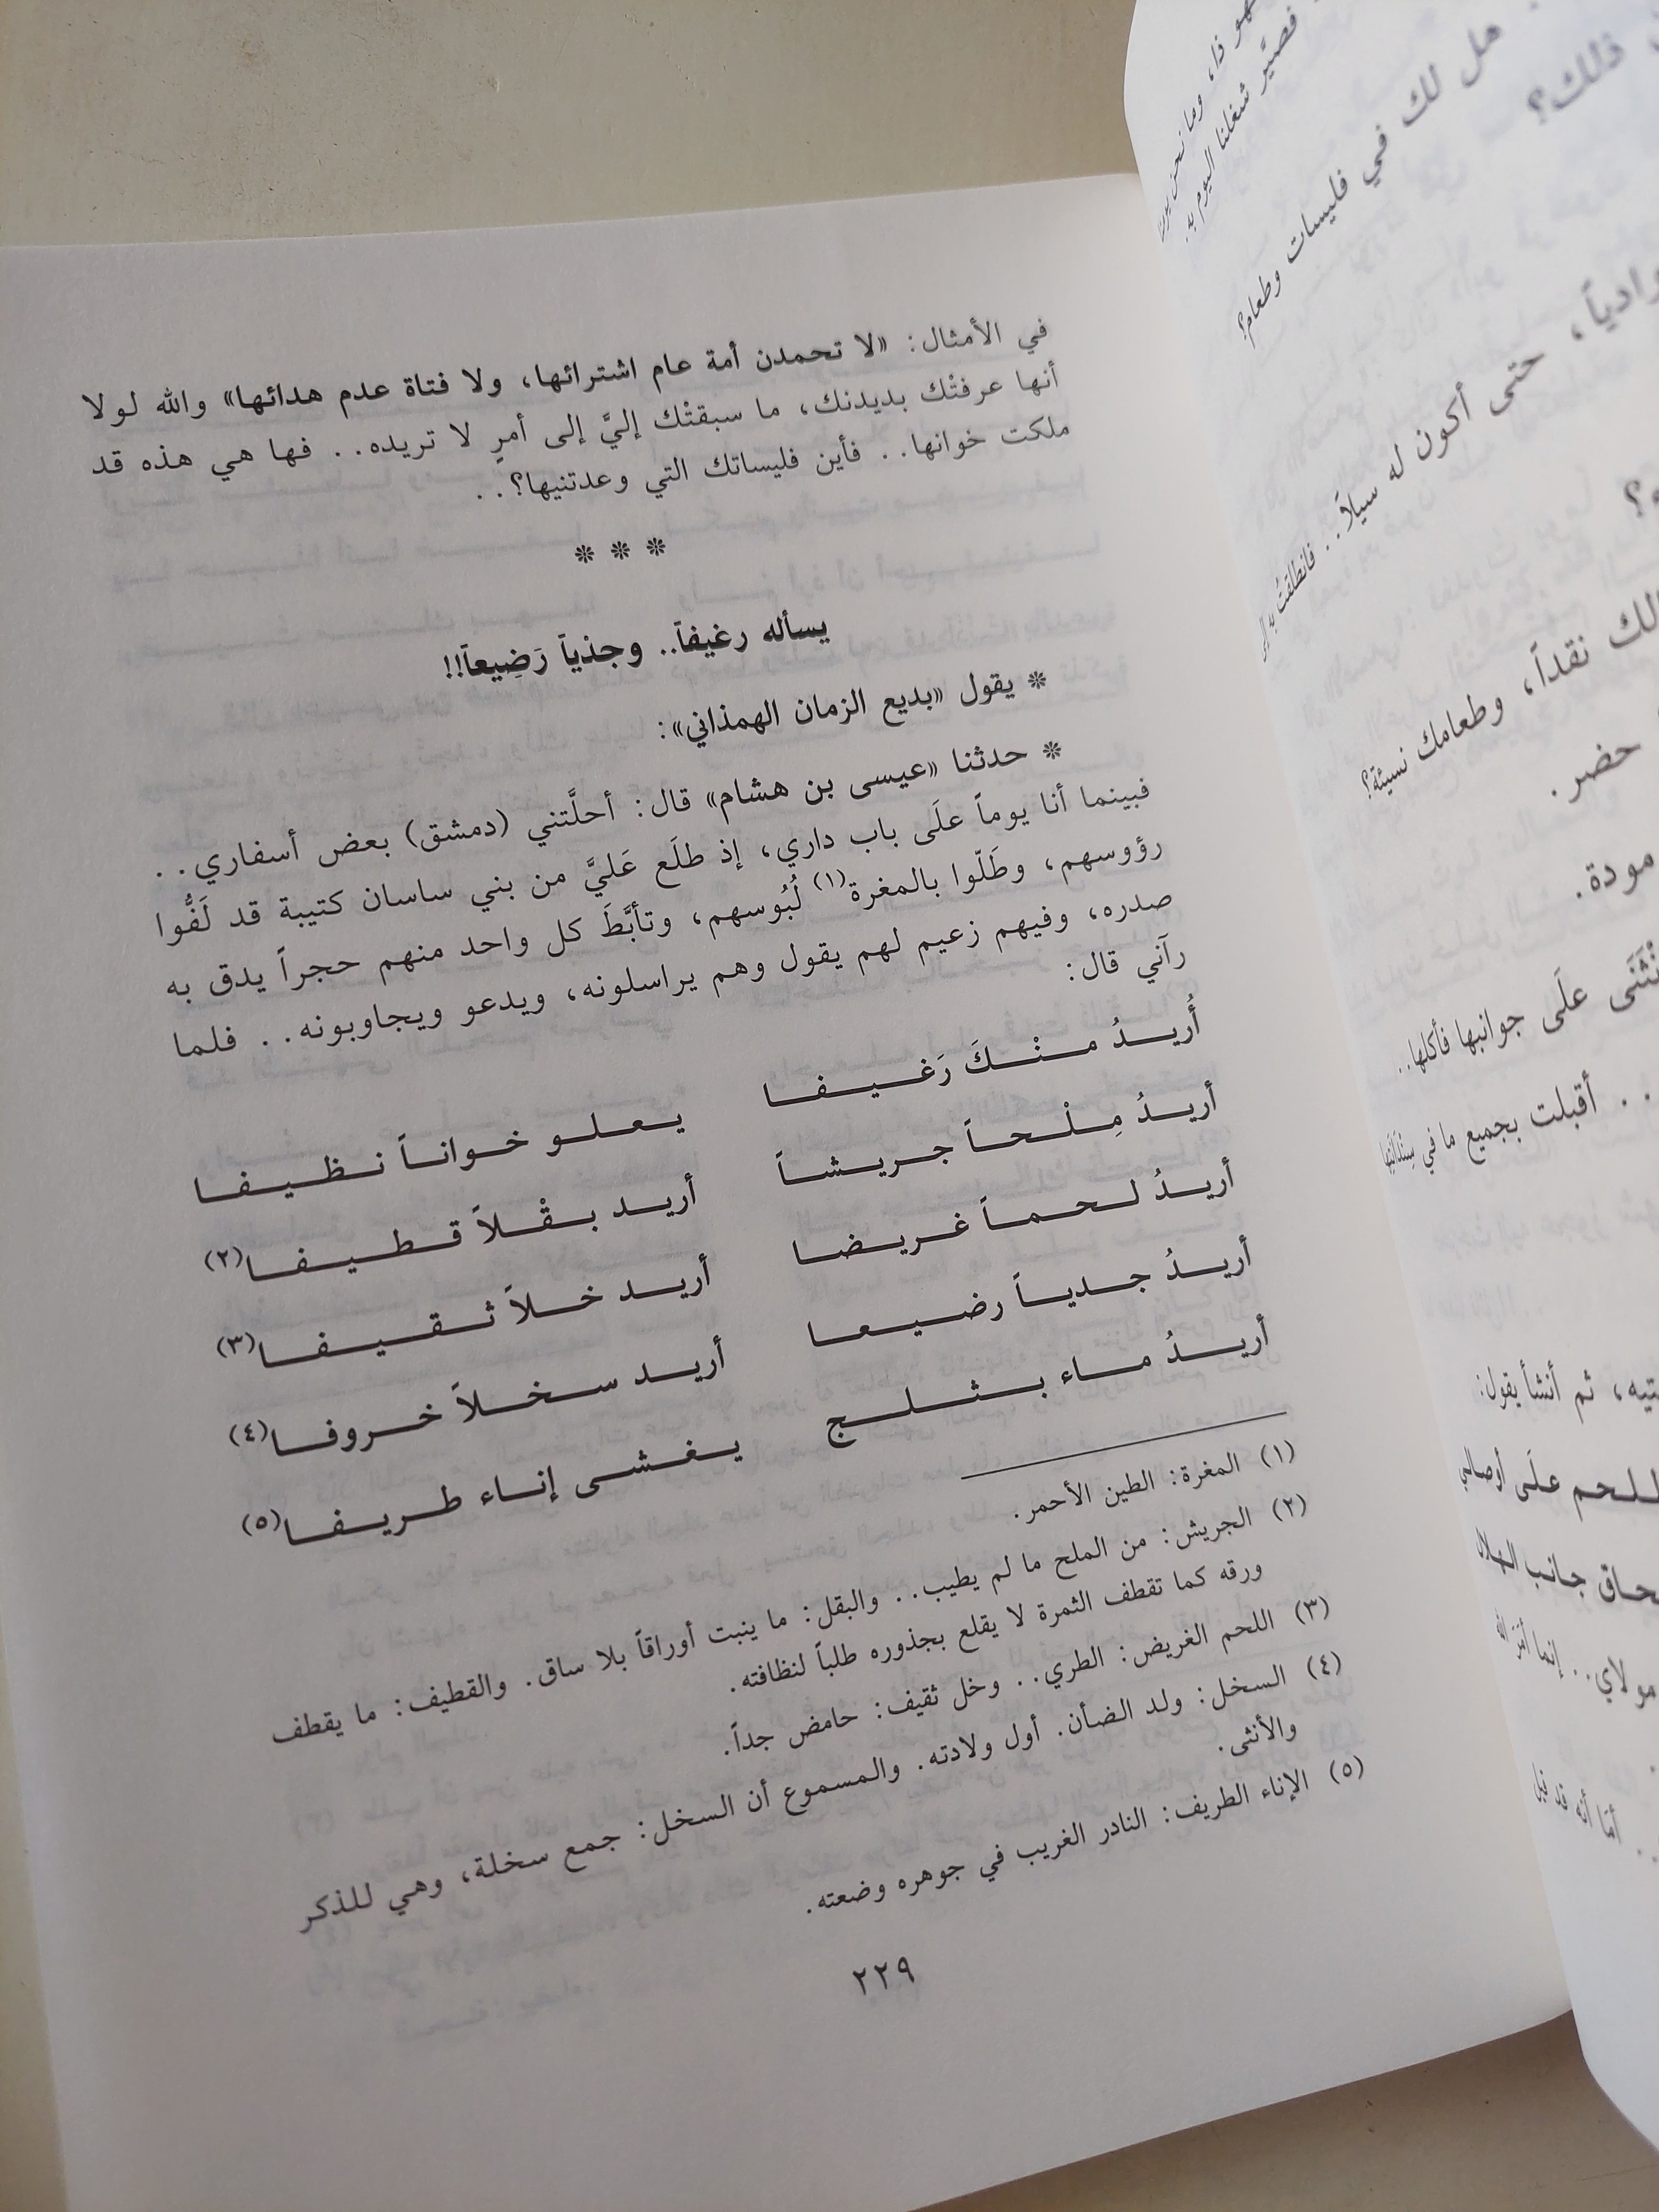 في الأمثال: «لا تحمدن أمة عام اشترائها، ولا فتاة عدم هدائها» والله لولا
أنها عرفتْك بديدنك، ما سبقتْك إليَّ إلى أمرٍ لا تريده.. فها هي هذه قد
ملكت خوانها.. فأين فليساتك التي وعدتنيها؟..
* * *
يسأله رغيفاً.. وجذياً رَضِيعاً!!
* يقول «بديع الزمان الهمذاني»:
* حدثنا «عيسى بن هشام» قال: أحلَّتني (دمشق) بعض أسفاري..
فبينما أنا يوماً علَى باب داري، إذ طلَع عَليَّ من بني ساسان كتيبة قد لَفُّوا
رؤوسهم، وطَلّوا بالمغرة(١) لُبُوسهم، وتأبَّطَ كل واحد منهم حجراً يدق به
صدره، وفيهم زعيم لهم يقول وهم يراسلونه، ويدعو ويجاوبونه.. فلما
رآني قال:
أُريدُ منْكَ رَغيفا يعلو خواناً نظيفا
أريدُ مِلْحاً جريشاً أريد بقْلاً قطيفا(٢)
أريدُ لحماً غريضا أريد خلاً ثقيفا(٣)
أريدُ جدياً رضيعا أريد سخلاً خروفا(٤)
أريدُ ماء بثلج يغشى إناء طريفا(٥)
(١) المغرة: الطين الأحمر.
(٢) الجريش: من الملح ما لم يطيب.. والبقل: ما ينبت أوراقاً بلا ساق. والقطيف: ما يقطف
ورقه كما تقطف الثمرة لا يقلع بجذوره طلباً لنظافته.
(٣) اللحم الغريض: الطري.. وخل ثقيف: حامض جداً.
(٤) السخل: ولد الضأن. أول ولادته. والمسموع أن السخل: جمع سخلة، وهي للذكر
والأنثى.
(٥) الإناء الطريف: النادر الغريب في جوهره وضعته.
٢٢٩
فصيَّر شغلنا اليوم به.
هل لك في فليسات وطعام؟
ذلك؟
حتى أكون له سبيلاً.. فانطلقتُ به إلى
نقداً، وطعامك نسيئة؟
حضر.
مودة.
علَى جوانبها فأكلها..
.. أقبلت بجميع ما في
ثم أنشأ يقول:
علَى أوصالي
جانب الهلال
مولاي.. إنما
أمّا أنه قد قيل